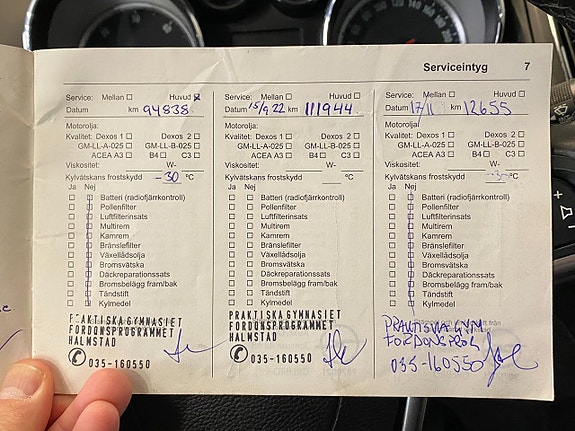 Serviceintyg 7
Service: Mellan Huvud
Datum km 94838
Motorolja:
Kvalitet: Dexos 1 Dexos 2
GM-LL-A-025 GM-LL-B-025
ACEA A3 B4 C3
Viskositet: W-
Kylvätskans frostskydd -30 °C
Ja Nej
Batteri (radiofjärrkontroll)
Pollenfilter
Luftfilterinsats
Multirem
Kamrem
Bränslefilter
Växellådsolja
Bromsvätska
Däckreparationssats
Bromsbelägg fram/bak
Tändstift
Kylmedel
PRAKTISKA GYMNASIET
FORDONSPROGRAMMET
HALMSTAD
035-160550
Service: Mellan Huvud
Datum 15/9.22 km 111944
Motorolja:
Kvalitet: Dexos 1 Dexos 2
GM-LL-A-025 GM-LL-B-025
ACEA A3 B4 C3
Viskositet: W-
Kylvätskans frostskydd °C
Ja Nej
Batteri (radiofjärrkontroll)
Pollenfilter
Luftfilterinsats
Multirem
Kamrem
Bränslefilter
Växellådsolja
Bromsvätska
Däckreparationssats
Bromsbelägg fram/bak
Tändstift
Kylmedel
PRAKTISKA GYMNASIET
FORDONSPROGRAMMET
HALMSTAD
035-160550
Service: Mellan Huvud
Datum 17/11 km 12655
Motorolja
Kvalitet: Dexos 1 Dexos 2
GM-LL-A-025 GM-LL-B-025
ACEA A3 B4 C3
Viskositet: W-
Kylvätskans frostskydd °C
Ja Nej
Batteri (radiofjärrkontroll)
Pollenfilter
Luftfilterinsats
Multirem
Kamrem
Bränslefilter
Växellådsolja
Bromsvätska
Däckreparationssats
Bromsbelägg fram/bak
Tändstift
Kylmedel
PRAKTISKA GYM
FORDONSPROG
035-160550